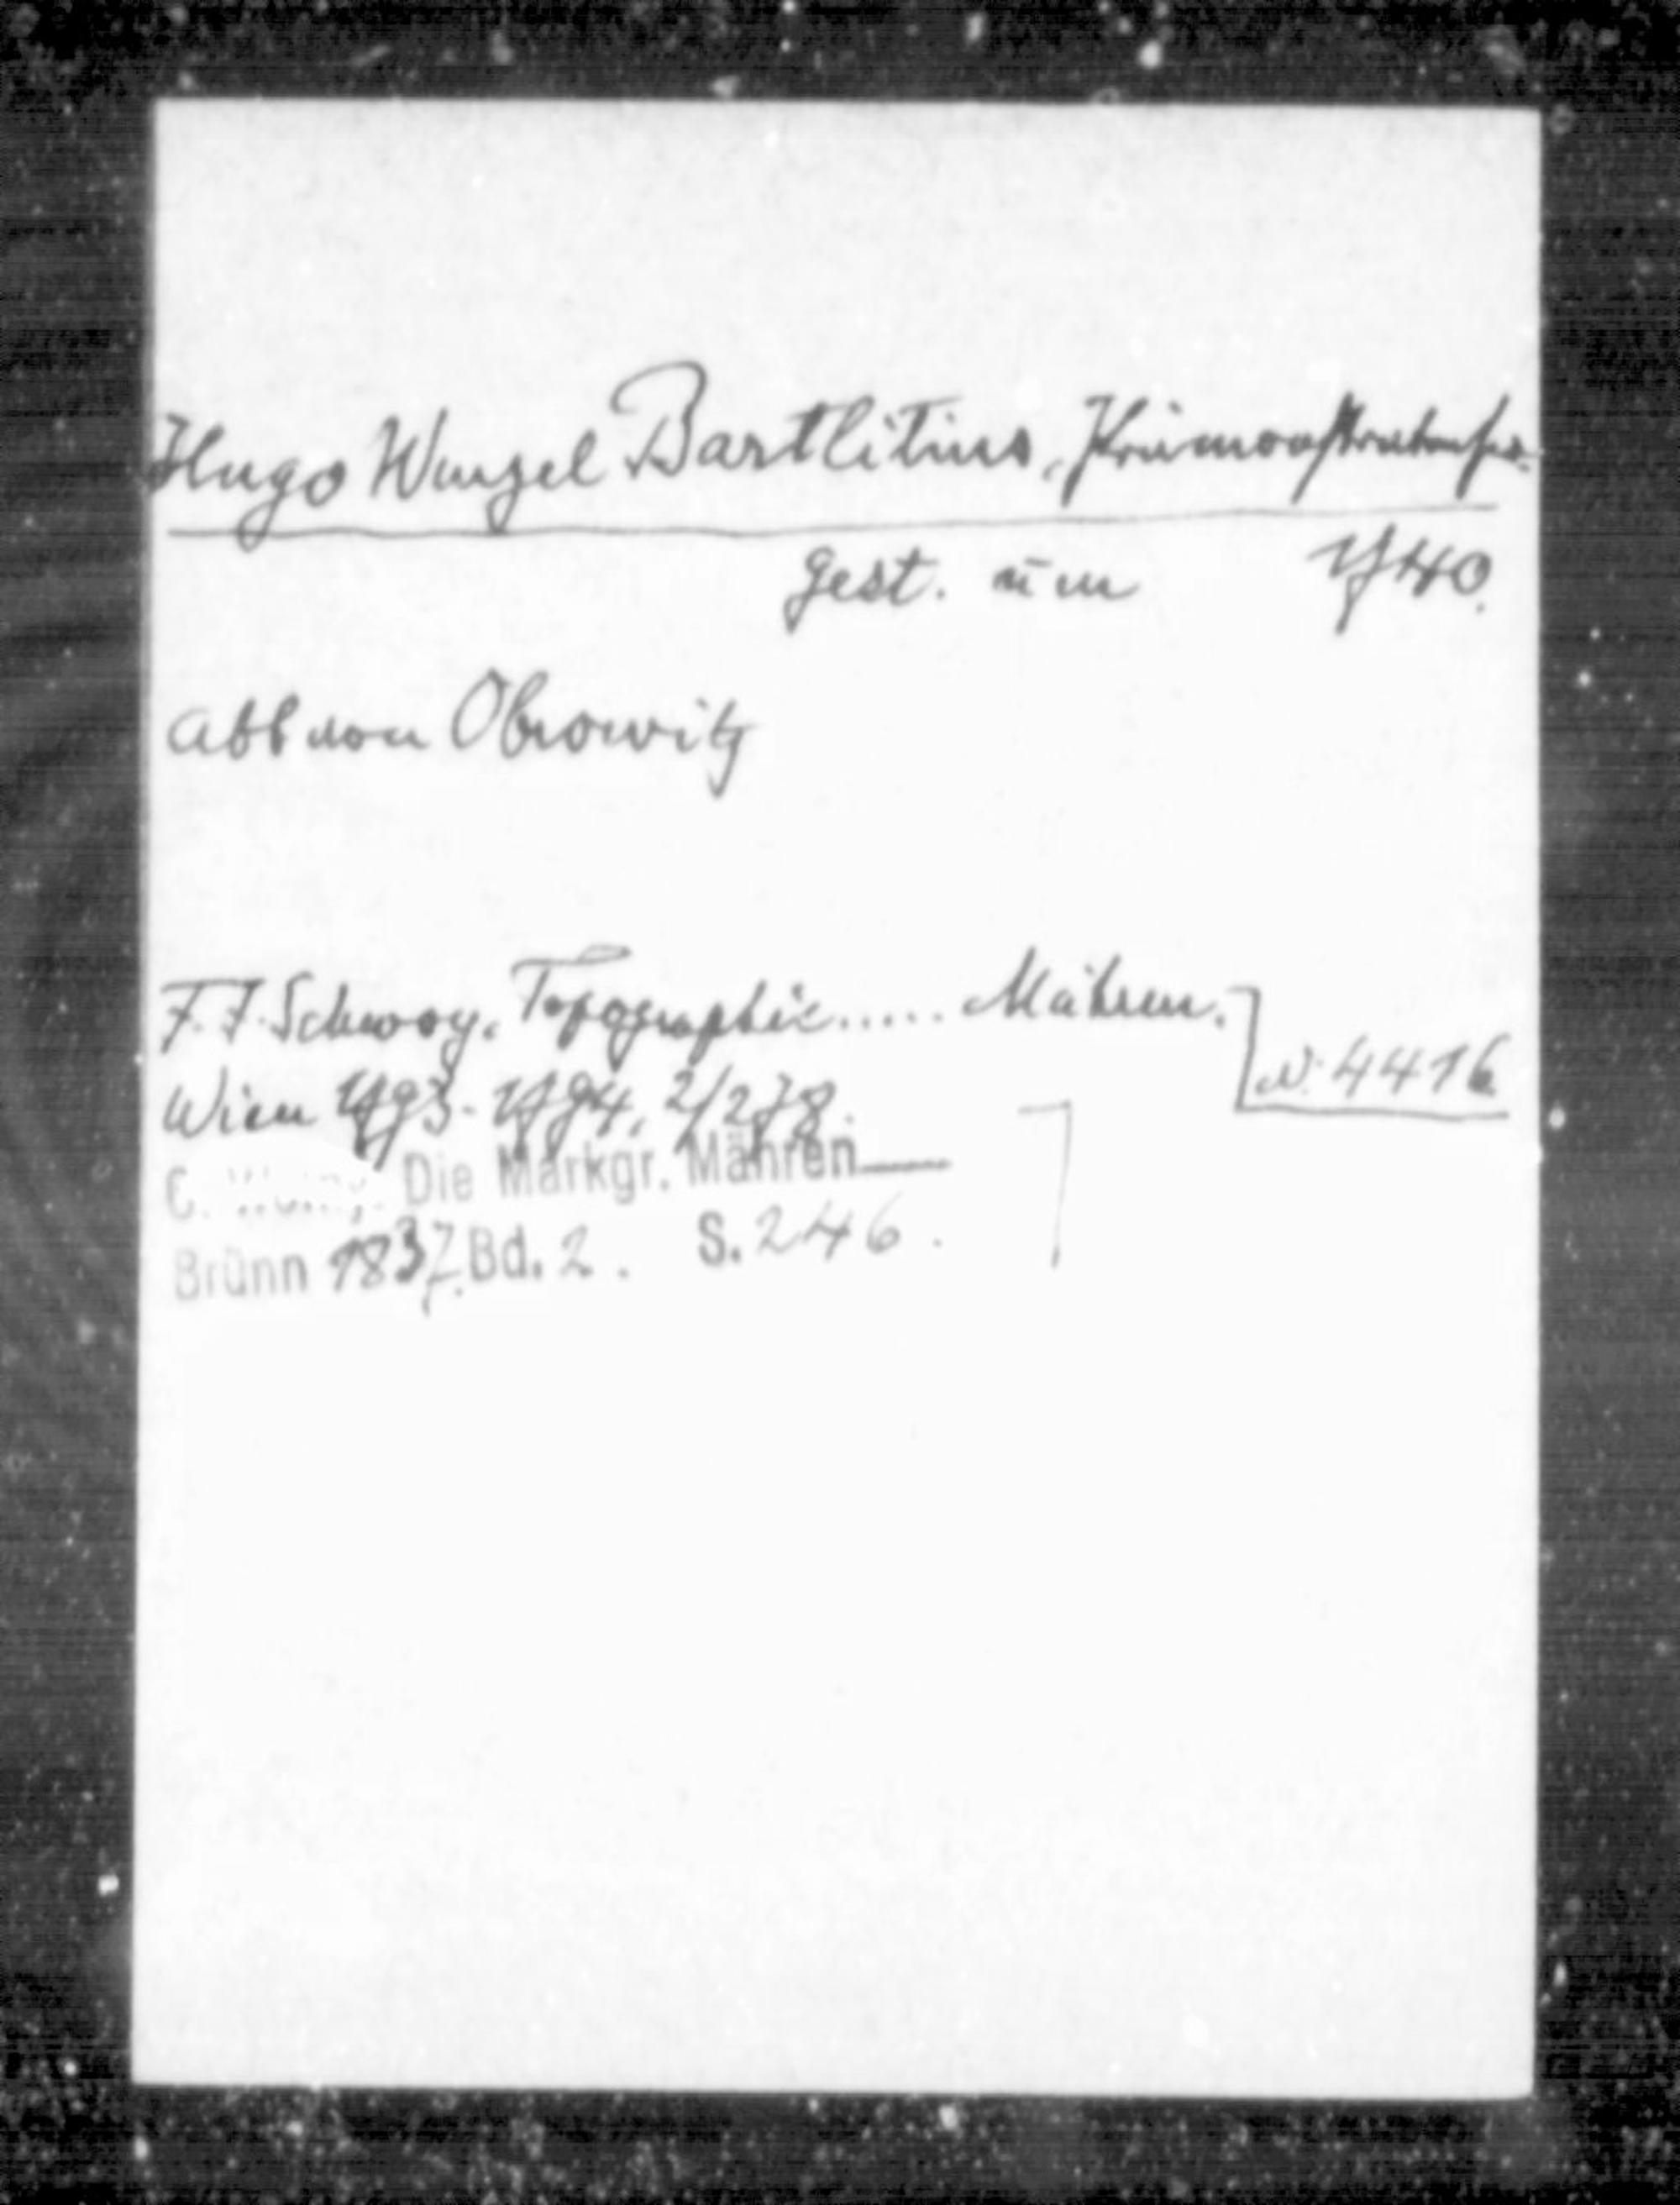 Hugo Wenzel Bartlitius, Prämonstratenser.
gest. um 1740.
Abt von Obrowitz
F. J. Schwoy. Topographie ..... Mähren.
Wien 1793-1794, 2/278.
N. 4416
C. Die Markgr. Mähren
Brünn 1837. Bd. 2. S. 246.